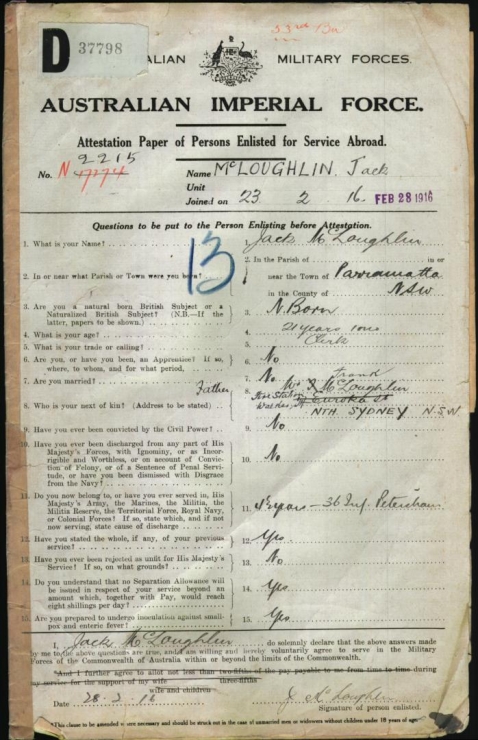 53rd Bn
D 37798
ALIAN MILITARY FORCES.
AUSTRALIAN IMPERIAL FORCE.
Attestation Paper of Persons Enlisted for Service Abroad.
2215
No. N 17774
Name McLOUGHLIN, Jack
Unit
Joined on 23 2 16. FEB 28 1916
Questions to be put to the Person Enlisting before Attestation.
13
1. What is your Name? Jack McLoughlin
2. In or near what Parish or Town were you born? 2. In the Parish of in or
near the Town of Parramatta
in the County of NSW
3. Are you a natural born British Subject or a
Naturalized British Subject? (N.B.—If the
latter, papers to be shown.) 3. N. Born
4. What is your age? 4. 21 years
5. What is your trade or calling? 5. Clerk
6. Are you, or have you been, an Apprentice? If so,
where, to whom, and for what period. 6. No
7. Are you married? 7. No
8. Who is your next of kin? (Address to be stated) Father 8. Mr Frank McLoughlin
Fire Station
Eureka St
NTH. SYDNEY N.S.W
9. Have you ever been convicted by the Civil Power? 9. No
10. Have you ever been discharged from any part of His
Majesty's Forces, with Ignominy, or as Incor-
rigible and Worthless, or on account of Convic-
tion of Felony, or of a Sentence of Penal Servi-
tude, or have you been Dismissed with Disgrace
from the Navy? 10. No
11. Do you now belong to, or have you ever served in, His
Majesty's Army, the Marines, the Militia, the
Militia Reserve, the Territorial Force, Royal Navy,
or Colonial Forces? If so, state which, and if not
now serving, state cause of discharge 11. years — 36 Inf. Petersham
12. Have you stated the whole, if any, of your previous
service? 12. Yes
13. Have you ever been rejected as unfit for His Majesty's
Service? If so, on what grounds? 13. No
14. Do you understand that no Separation Allowance will
be issued in respect of your service beyond an
amount which, together with Pay, would reach
eight shillings per day? 14. Yes
15. Are you prepared to undergo inoculation against small-
pox and enteric fever? 15. Yes
I, Jack McLoughlin do solemnly declare that the above answers made
by me to the above questions are true, and I am willing and hereby voluntarily agree to serve in the Military
Forces of the Commonwealth of Australia within or beyond the limits of the Commonwealth.
*And I further agree to allot not less than two-fifths of the pay payable to me from time to time during
three-fifths
my service for the support of my wife
wife and children
Date 28-2-16 J. McLoughlin
Signature of person enlisted.
*This clause to be amended where necessary and should be struck out in the case of unmarried men or widowers without children under 18 years of age.